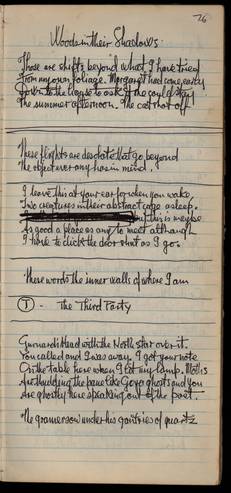 76
Words in their Shadows
Those are shifts beyond what I have tried
from my own foliage. Margaret had come, early
down to the to ask if she could stay
the summer afternoon. The cast shot off
These flights are desolate that go beyond
The object ever any has in mind.
I leave this at your ear for when you wake,
Two creatures in their abstract cage asleep.
this is maybe
As good a place as any to meet although
I have to click the door shut as I go.
These words the inner walls of where I am
① - The Third Party
Gurnards Head with the North star over it.
You called and I was away. I got your note
On the table here when I lit my lamp. Moths
Are thudding the pane like Goya ghosts and you
Are ghostly here speaking out of the past.
The gramersow under his gantries of quartz